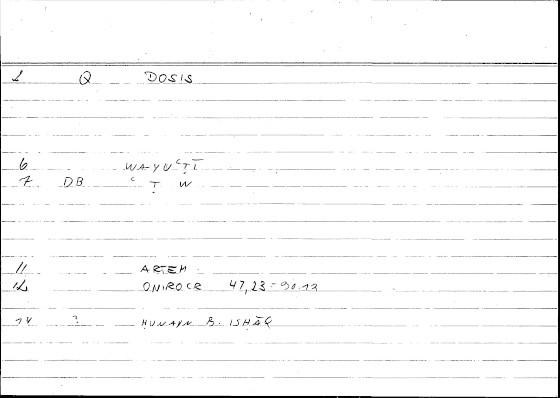 1 Q DOSIS
6 WA-YUʿṬĪ
7 DB ʿ Ṭ W
11 ARTEM
12 ONIROCR 47,23 = 90.12
14 ? HUNAYN B. ISHĀQ